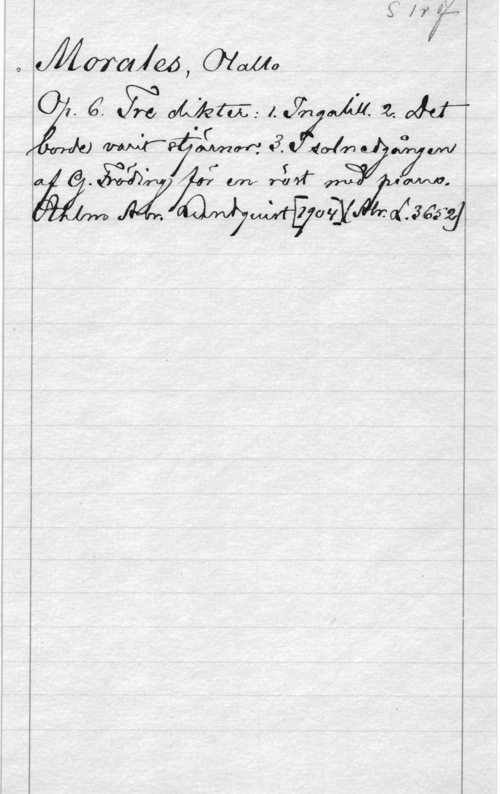 S 1r
Morales, Olallo
Op. 6. Tre dikter: 1. Ingalill. 2. Det
borde varit stjärnor. 3. I solnedgången
af G. Fröding för en röst med piano.
Sthlm Abr. Lundquist [1904] (Abr. L. 3652)